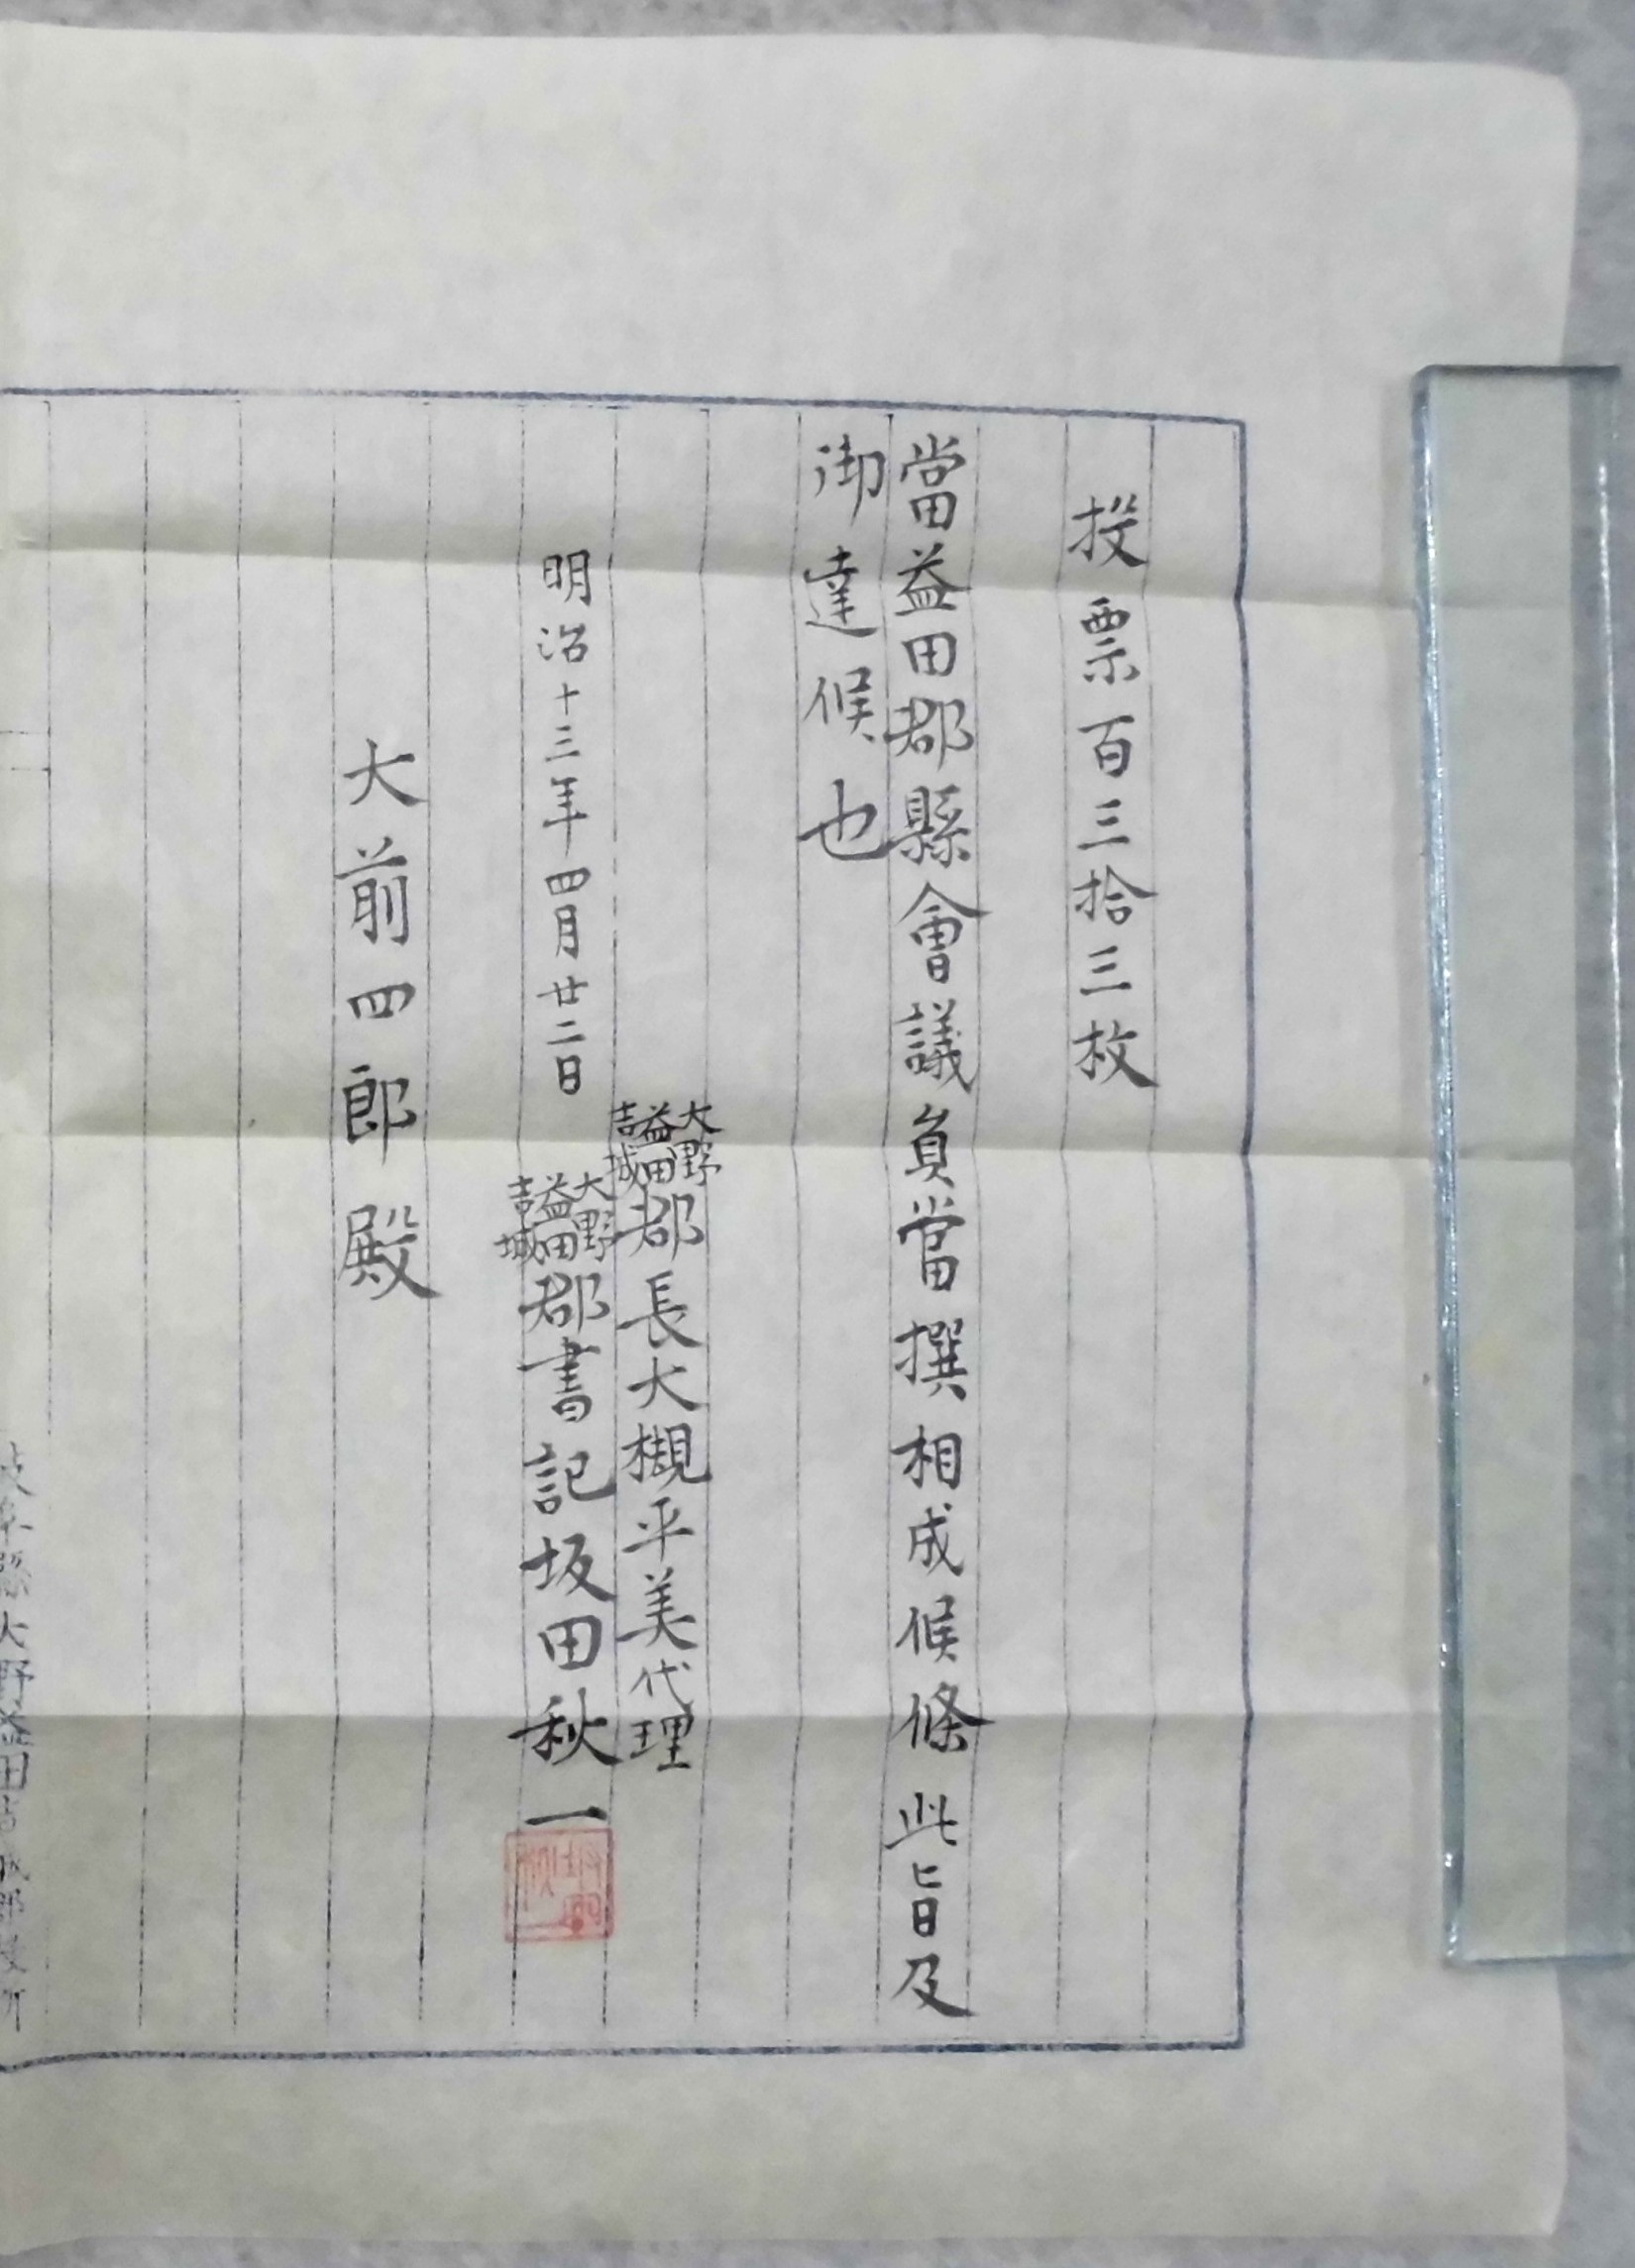 投票百三拾三枚
當益田郡縣會議員當撰相成候條此旨及
御達候也
大野
益田
吉城
郡長大槻平美代理
明治十三年四月廿二日
大野
益田
吉城
郡書記坂田秋一
大前四郎殿
岐阜縣大野益田吉城郡役所